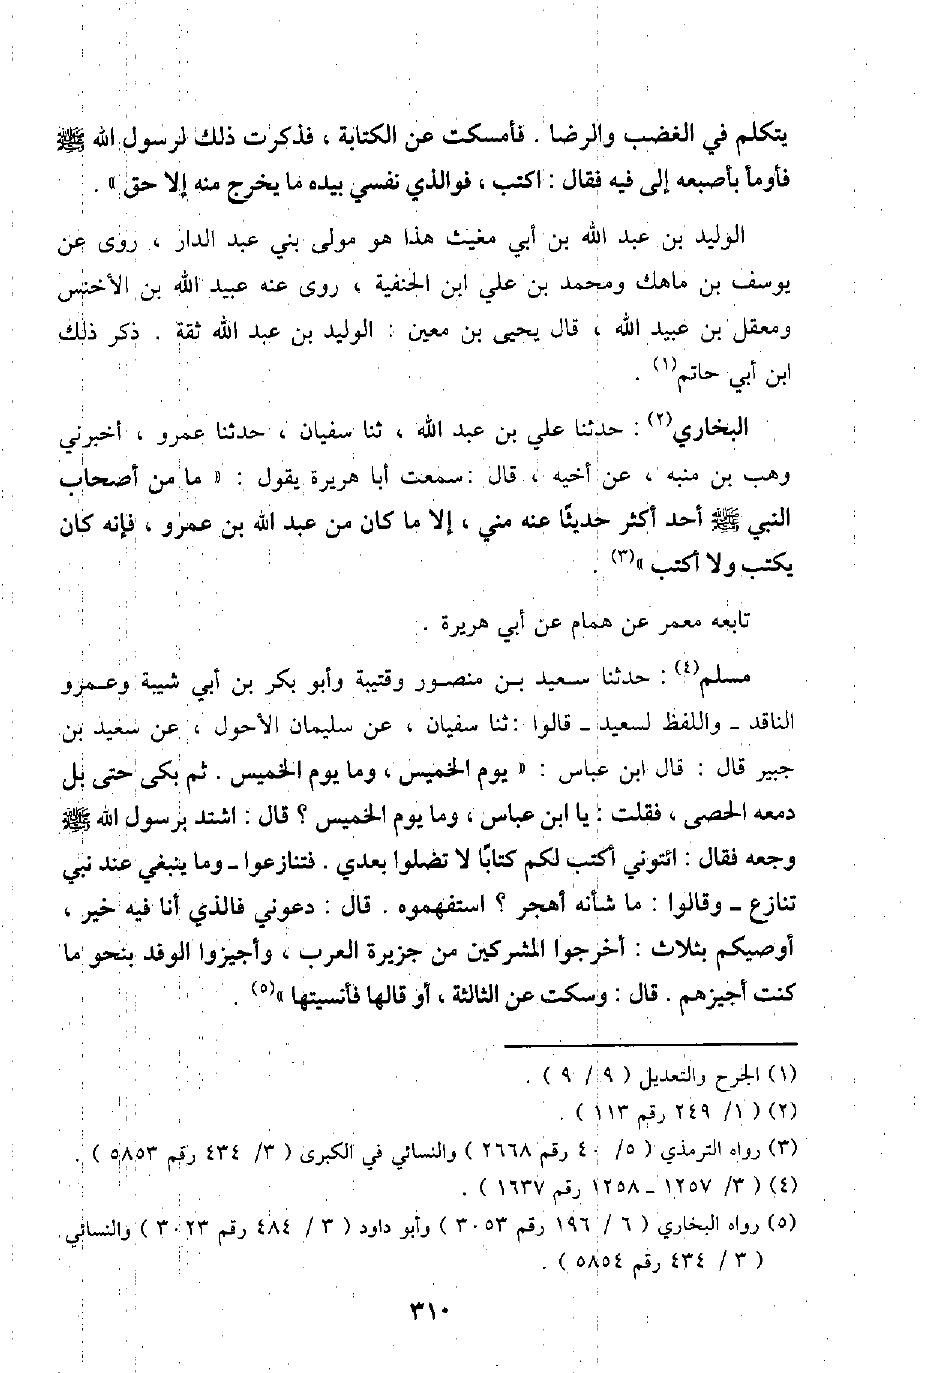 يتكلم في الغضب والرضا . فأمسكت عن الكتابة ، فذكرت ذلك لرسول الله ﷺ
فأومأ بأصبعه إلى فيه فقال : اكتب ، فوالذي نفسي بيده ما يخرج منه إلا حق » .
الوليد بن عبد الله بن أبي مغيث هذا هو مولى بني عبد الدار ، روى عن
يوسف بن ماهك ومحمد بن علي ابن الحنفية ، روى عنه عبيد الله بن الأخنس
ومعقل بن عبيد الله ، قال يحيى بن معين : الوليد بن عبد الله ثقة . ذكر ذلك
ابن أبي حاتم(١) .
البخاري(٢) : حدثنا علي بن عبد الله ، ثنا سفيان ، حدثنا عمرو ، أخبرني
وهب بن منبه ، عن أخيه ، قال : سمعت أبا هريرة يقول : « ما من أصحاب
النبي ﷺ أحد أكثر حديثًا عنه مني ، إلا ما كان من عبد الله بن عمرو ، فإنه كان
يكتب ولا أكتب »(٣) .
تابعه معمر عن همام عن أبي هريرة .
مسلم(٤) : حدثنا سعيد بن منصور وقتيبة وأبو بكر بن أبي شيبة وعمرو
الناقد ـ واللفظ لسعيد ـ قالوا : ثنا سفيان ، عن سليمان الأحول ، عن سعيد بن
جبير قال : قال ابن عباس : « يوم الخميس ، وما يوم الخميس . ثم بكى حتى بل
دمعه الحصى ، فقلت : يا ابن عباس ، وما يوم الخميس ؟ قال : اشتد برسول الله ﷺ
وجعه فقال : ائتوني أكتب لكم كتابًا لا تضلوا بعدي . فتنازعوا ـ وما ينبغي عند نبي
تنازع ـ وقالوا : ما شأنه أهجر ؟ استفهموه . قال : دعوني فالذي أنا فيه خير ،
أوصيكم بثلاث : أخرجوا المشركين من جزيرة العرب ، وأجيزوا الوفد بنحو ما
كنت أجيزهم . قال : وسكت عن الثالثة ، أو قالها فأنسيتها »(٥) .
(١) الجرح والتعديل ( ٩ / ٩ ) .
(٢) ( ١/ ٢٤٩ رقم ١١٣ ) .
(٣) رواه الترمذي ( ٥/ ٤٠ رقم ٢٦٦٨ ) والنسائي في الكبرى ( ٣/ ٤٣٤ رقم ٥٨٥٣ ) .
(٤) ( ٣/ ١٢٥٧ ـ ١٢٥٨ رقم ١٦٣٧ ) .
(٥) رواه البخاري ( ٦ / ١٩٦ رقم ٣٠٥٣ ) وأبو داود ( ٣ / ٤٨٤ رقم ٣٠٢٣ ) والنسائي
( ٣ / ٤٣٤ رقم ٥٨٥٤ ) .
٣١٠